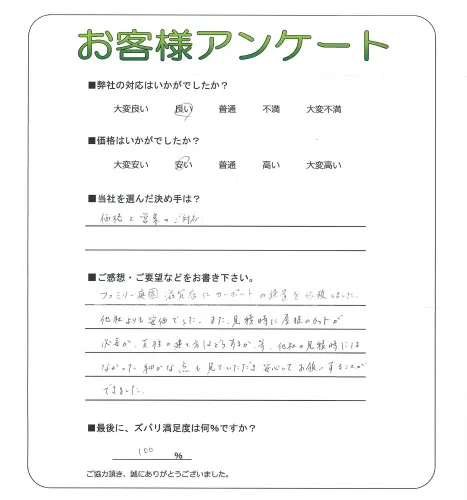 お客様アンケート
■弊社の対応はいかがでしたか？
大変良い 良い 普通 不満 大変不満
■価格はいかがでしたか？
大変安い 安い 普通 高い 大変高い
■当社を選んだ決め手は？
価格と営業のご対応
■ご感想・ご要望などをお書き下さい。
ファミリー庭園 滋賀店にカーポートの設置を依頼しました。
他社よりも安価でした。また、見積時に屋根のカットが
必要か、支柱の建て方はどうするか、等、他社の見積時には
なかった細かな点も見ていただき安心してお願いすることが
できました。
■最後に、ズバリ満足度は何%ですか？
100 %
ご協力頂き、誠にありがとうございました。